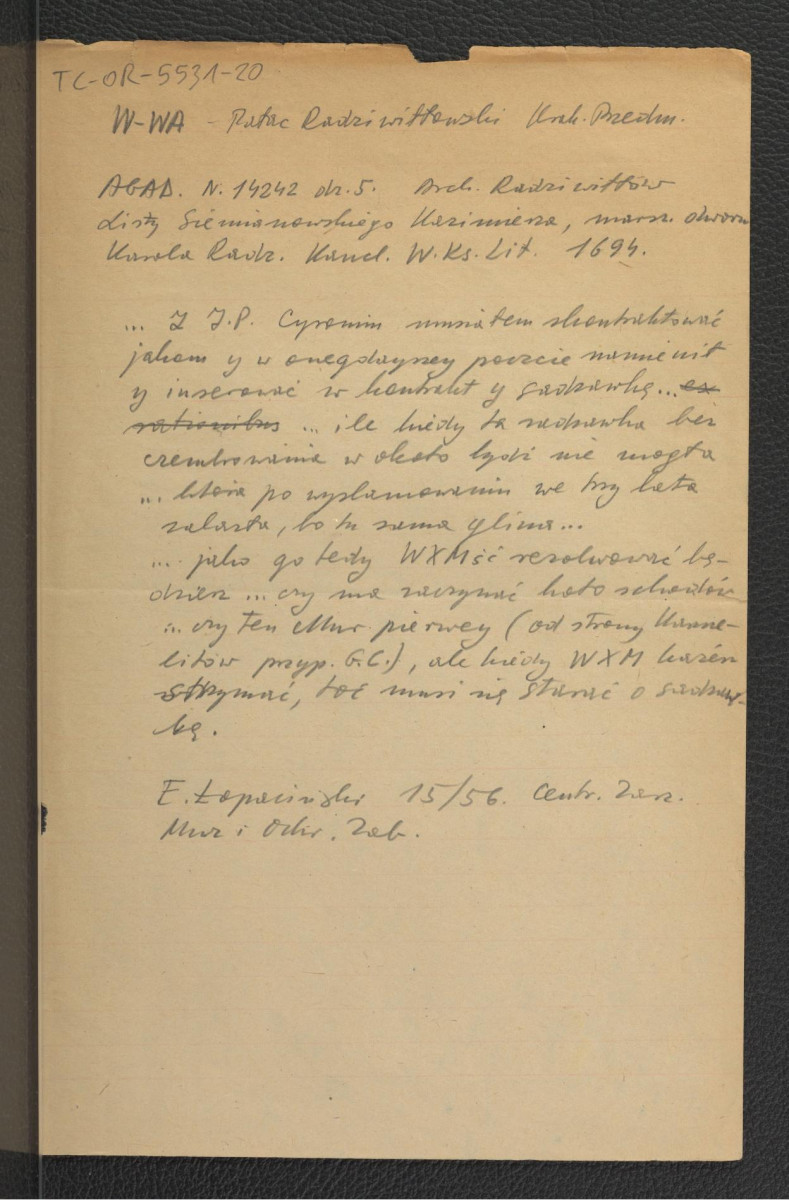 TC-OR-5531-20
W-WA - Pałac Radziwiłłowski Krak. Przedm.
AGAD. N. 14242 dz. 5. Arch. Radziwiłłów
Listy Siemianowskiego Kazimierza, marsz. dworu
Karola Radz. Kancl. W. Ks. Lit. 1694.
... Z J.P. Cyronim musiałem skontraktować
jakom y w onegdayszey poczcie namienił
y inserować w kontrakt y sadzawkę... ex
rationibus ... ile kiedy ta sadzawka bez
czembrowania w około bydź nie mogła
... która po wyszlamowaniu we trzy lata
zalazła, bo tu sama glina...
... jako go tedy WXMść rezolwować bę-
dziesz ... czy ma zaczynać koło schodów
... czy ten Mur pierwey (od strony Karme-
litów przyp. G.C.), ale kiedy WXM każesz
strzymać, toć musi się starać o sadzaw-
kę.
E. Łopaciński 15/56. Centr. Zarz.
Muz i Ochr. Zab.